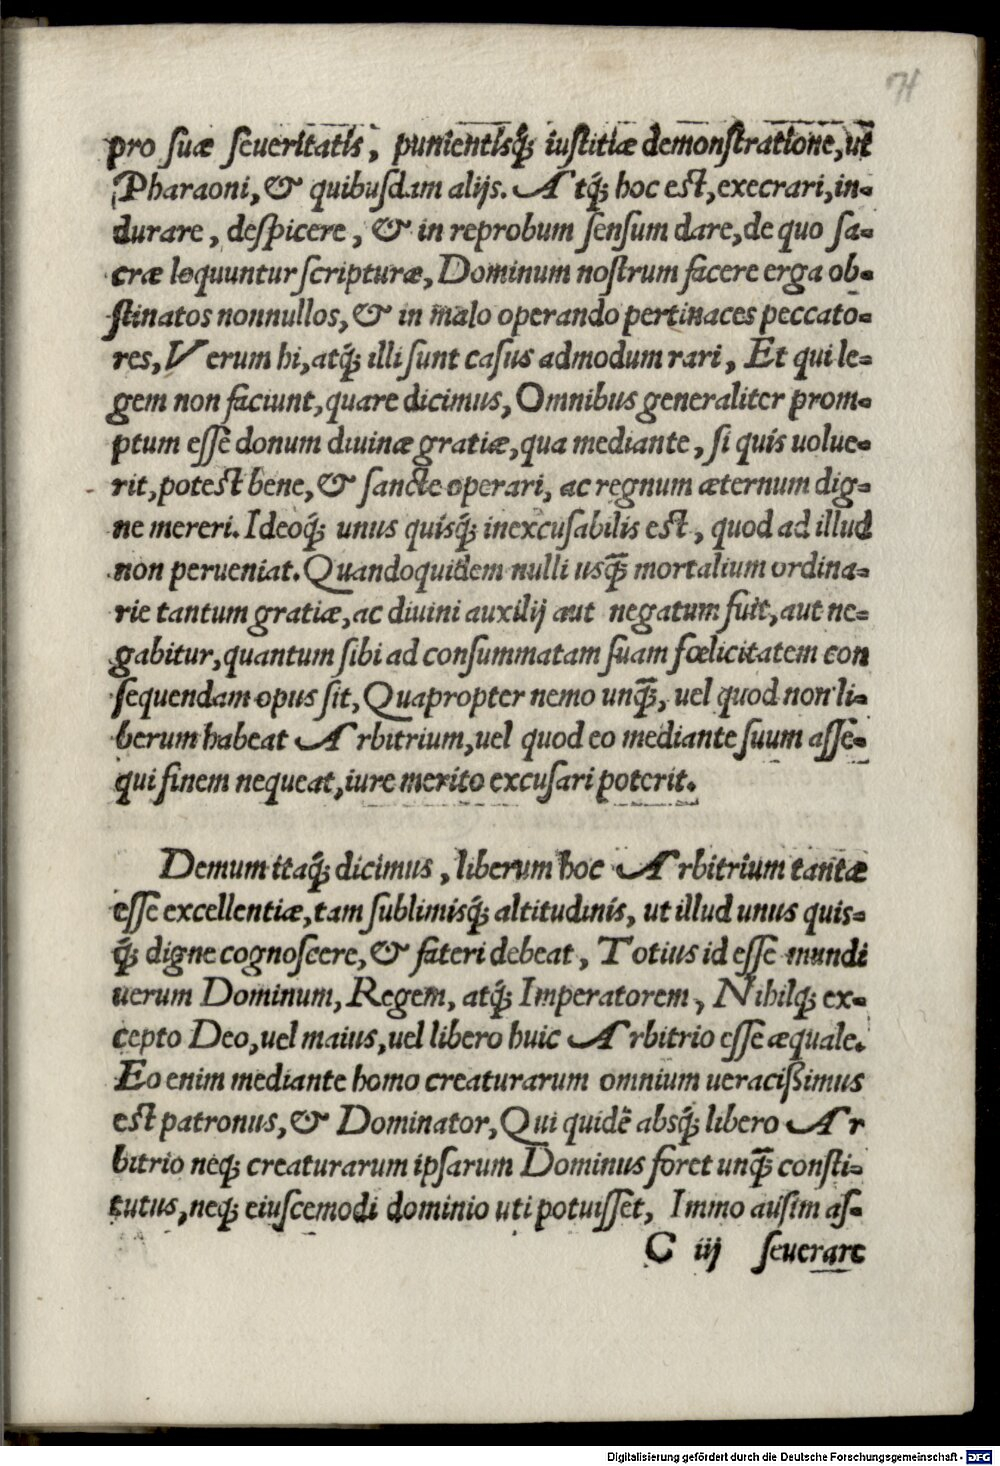 71
pro suæ seueritatis, punientisq́; iustitiæ demonstratione, ut
Pharaoni, & quibusdam alijs. Atq́; hoc est, execrari, in-
durare, despicere, & in reprobum sensum dare, de quo sa-
cræ loquuntur scripturæ, Dominum nostrum facere erga ob-
stinatos nonnullos, & in malo operando pertinaces peccato-
res, Verum hi, atq́; illi sunt casus admodum rari, Et qui le-
gem non faciunt, quare dicimus, Omnibus generaliter prom-
ptum esse donum diuinæ gratiæ, qua mediante, si quis uolue-
rit, potest bene, & sancte operari, ac regnum æternum dig-
ne mereri. Ideoq́; unus quisq́; inexcusabilis est, quod ad illud
non perueniat. Quandoquidem nulli usq̃; mortalium ordina-
rie tantum gratiæ, ac diuini auxilij aut negatum fuit, aut ne-
gabitur, quantum sibi ad consummatam suam fœlicitatem con
sequendam opus sit, Quapropter nemo unq̃;, uel quod non li-
berum habeat Arbitrium, uel quod eo mediante suum asse-
qui finem nequeat, iure merito excusari poterit.
Demum itaq́; dicimus, liberum hoc Arbitrium tantæ
esse excellentiæ, tam sublimisq́; altitudinis, ut illud unus quis-
q́; digne cognoscere, & fateri debeat, Totius id esse mundi
uerum Dominum, Regem, atq́; Imperatorem, Nihilq; ex-
cepto Deo, uel maius, uel libero huic Arbitrio esse æquale.
Eo enim mediante homo creaturarum omnium ueracißimus
est patronus, & Dominator, Qui quidẽ absq́; libero Ar
bitrio neq; creaturarum ipsarum Dominus foret unq̃; consti-
tutus, neq; eiuscemodi dominio uti potuisset, Immo ausim as-
C iij seuerare
Digitalisierung gefördert durch die Deutsche Forschungsgemeinschaft - DFG